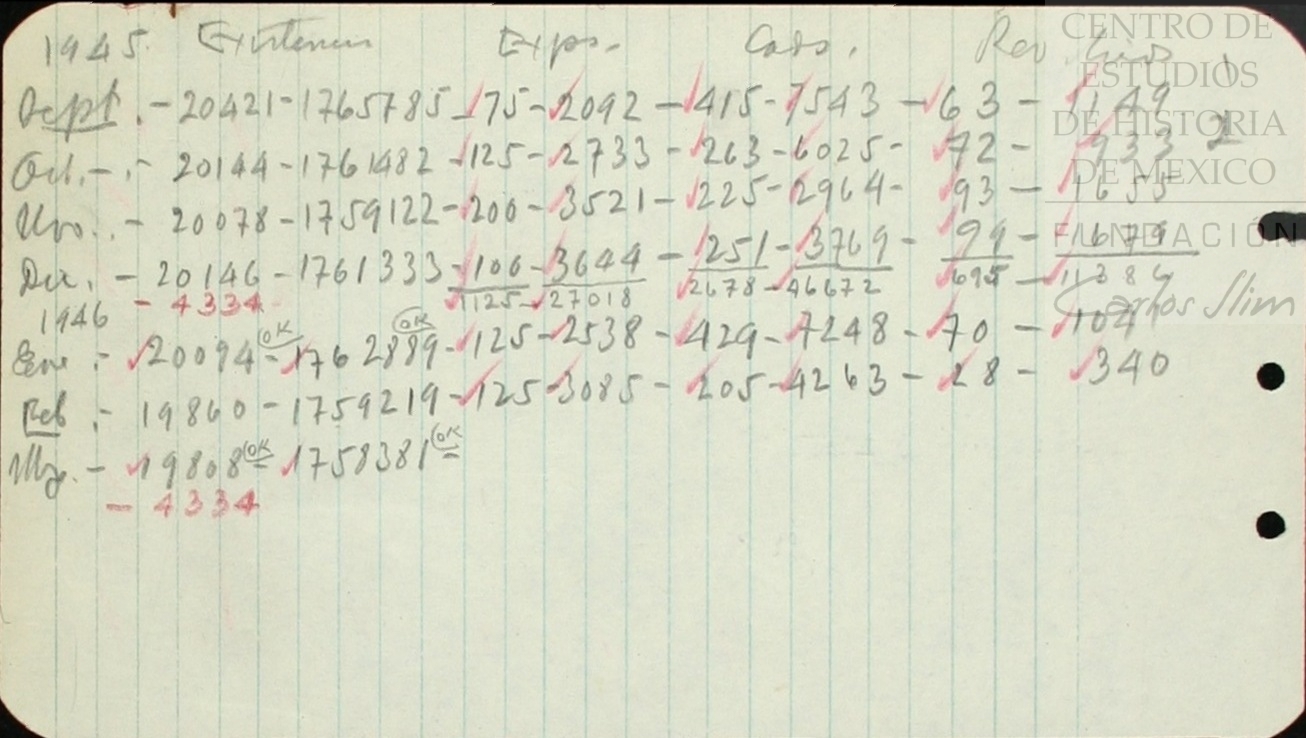 1945. Existencia Exps. Cads. Rev.
Sept. - 20421 - 1765785 - 75 - 2092 - 415 - 7543 - 63 - 1149
Oct. - - 20144 - 1761482 - 125 - 2733 - 263 - 6025 - 72 - 933
Nvo. - 20078 - 1759122 - 200 - 3521 - 225 - 2964 - 93 - 1655
Dic. - 20146 - 1761333 - 100 - 3644 - 251 - 3769 - 99 - 1679
- 4334 1125 - 27018 2678 - 46672 695 - 11386
1946
Ene. - 20094 OK - 1762889 OK - 125 - 2538 - 429 - 7248 - 70 -
Feb. - 19860 - 1759219 - 125 - 3085 - 205 - 4263 - 28 - 340
Mzo. - 19808 OK 1758381 OK
- 4334
CENTRO DE
ESTUDIOS
DE HISTORIA
DE MEXICO
FUNDACIÓN
Carlos Slim